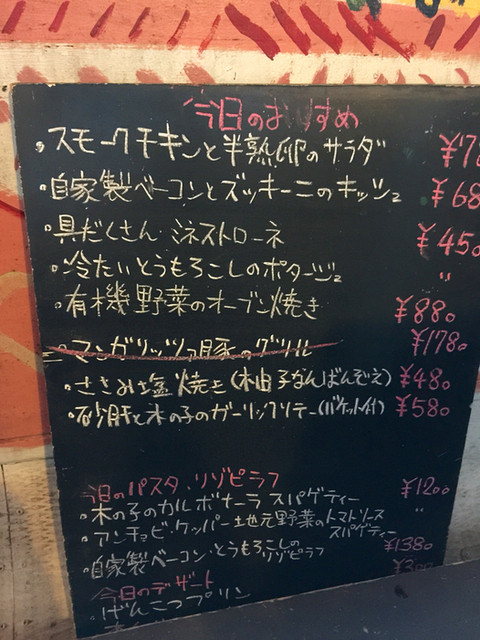 今日のおすすめ
・スモークチキンと半熟卵のサラダ
・自家製ベーコンとズッキーニのキッシュ ¥68
・具だくさん ミネストローネ ¥450
・冷たいとうもろこしのポタージュ 〃
・有機野菜のオーブン焼き ¥880
・マンガリッツァ豚のグリル ¥1780
・ささみ塩焼き(柚子なんばんぞえ) ¥480
・砂肝と木の子のガーリックソテー(バケット付) ¥580
今日のパスタ、リゾピラフ
・木の子のカルボナーラ スパゲティー ¥1200
・アンチョビ・ケッパー・地元野菜のトマトソース 〃
スパゲティー
・自家製ベーコン・とうもろこしの ¥1380
リゾピラフ
今日のデザート
・げんこつプリン